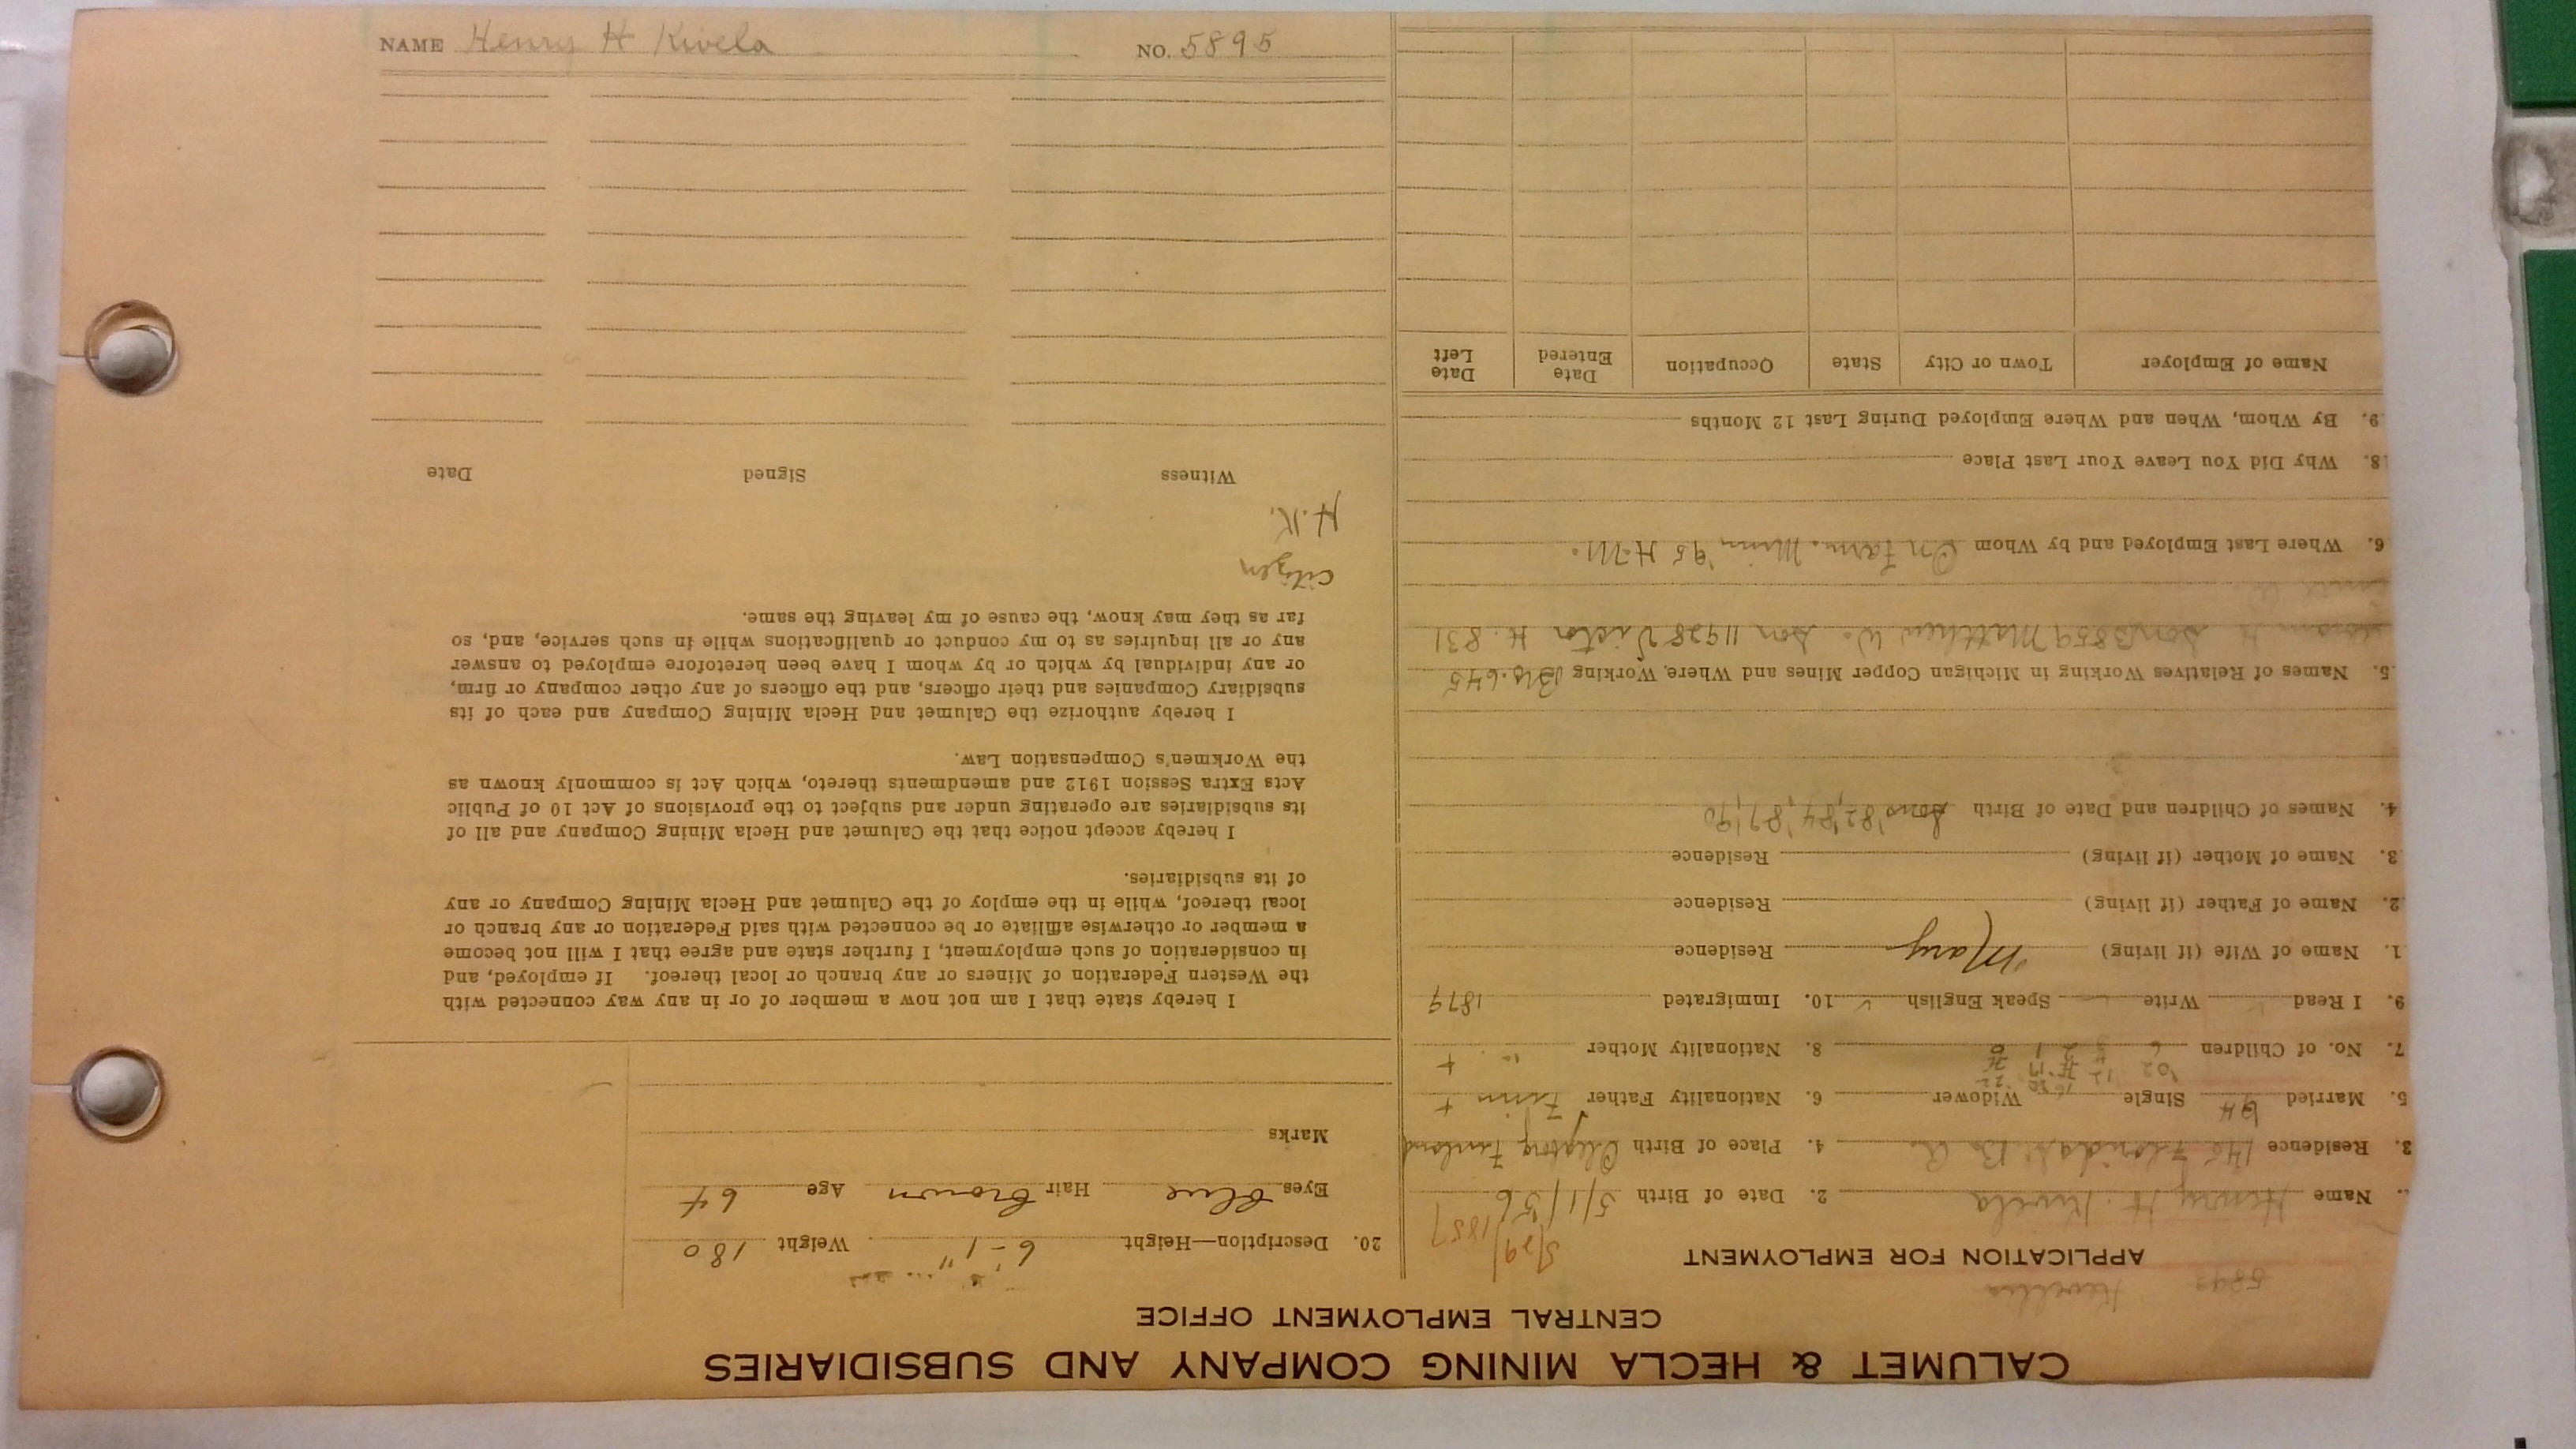 CALUMET & HECLA MINING COMPANY AND SUBSIDIARIES
CENTRAL EMPLOYMENT OFFICE
APPLICATION FOR EMPLOYMENT
5/29/1857
Name Henry H. Kivela 2. Date of Birth 5/1/56
3. Residence 146 Florida 4. Place of Birth Finland
5. Married Single Widower 6. Nationality Father Finn +
7. No. of Children 6 8. Nationality Mother " +
9. I Read Write Speak English 10. Immigrated 1879
1. Name of Wife (if living) Mary Residence
2. Name of Father (if living) Residence
3. Name of Mother (if living) Residence
4. Names of Children and Date of Birth Sons '82, '84, '87, '90
5. Names of Relatives Working in Michigan Copper Mines and Where Working Bro. 645
Son 3859 Matthew W. Son 11928 Victor H. 831
6. Where Last Employed and by Whom On farm. Minn. '95 H.M.
18. Why Did You Leave Your Last Place
9. By Whom, When and Where Employed During Last 12 Months
Name of Employer Town or City State Occupation Date Entered Date Left
20. Description—Height 6-1" Weight 180
Eyes Blue Hair Brown Age 64
Marks
I hereby state that I am not now a member of or in any way connected with
the Western Federation of Miners or any branch or local thereof. If employed, and
in consideration of such employment, I further state and agree that I will not become
a member or otherwise affiliate or be connected with said Federation or any branch or
local thereof, while in the employ of the Calumet and Hecla Mining Company or any
of its subsidiaries.
I hereby accept notice that the Calumet and Hecla Mining Company and all of
its subsidiaries are operating under and subject to the provisions of Act 10 of Public
Acts Extra Session 1912 and amendments thereto, which Act is commonly known as
the Workmen's Compensation Law.
I hereby authorize the Calumet and Hecla Mining Company and each of its
subsidiary Companies and their officers, and the officers of any other company or firm,
or any individual by which or by whom I have been heretofore employed to answer
any or all inquiries as to my conduct or qualifications while in such service, and, so
far as they may know, the cause of my leaving the same.
Citizen
H.K.
Witness Signed Date
NAME Henry H Kivela NO. 5895